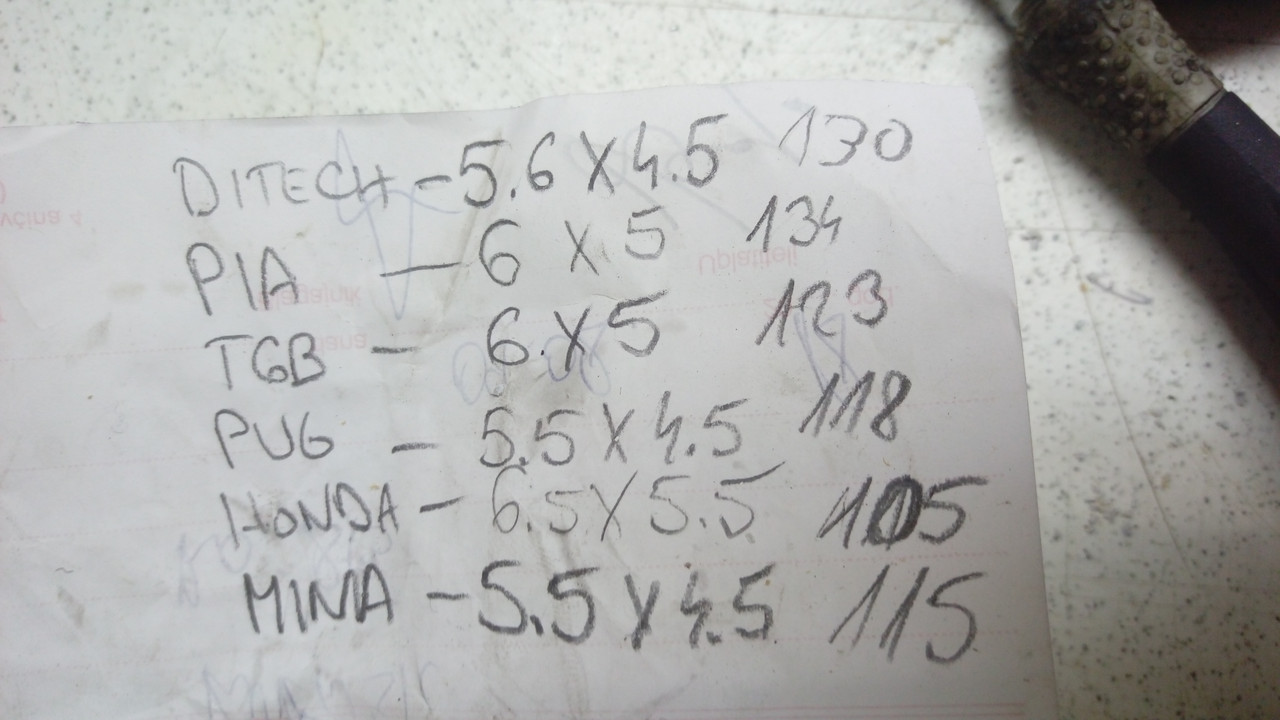 DITECH - 5.6 X 4.5 130
PIA - 6 X 5 134
TGB - 6 X 5 123
PUG - 5.5 X 4.5 118
HONDA - 6.5 X 5.5 105
MINA - 5.5 X 4.5 115